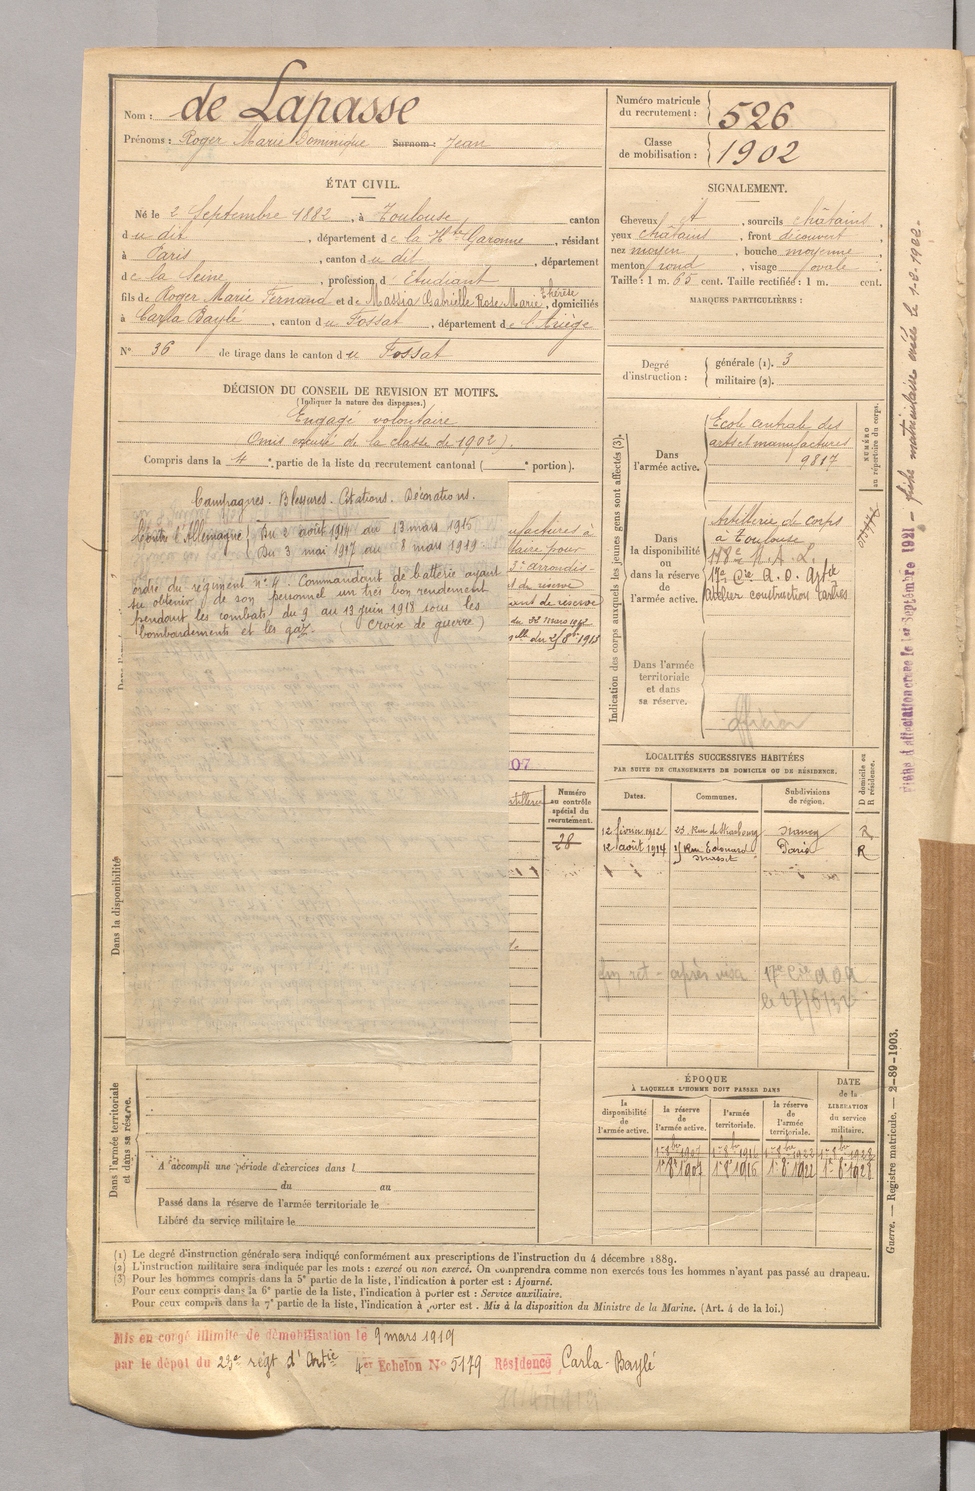 Nom : de Lapasse
Prénoms : Roger Marie Dominique Surnom : Jean
Numéro matricule du recrutement : 526
Classe de mobilisation : 1902
ÉTAT CIVIL.
Né le 2 Septembre 1882, à Toulouse, canton
du dit, département de la Hte Garonne, résidant
à Paris, canton du dit, département
de la Seine, profession d Etudiant
fils de Roger Marie Fernand et de Massia Gabrielle Rose Marie Thérèse, domiciliés
à Carla Baylé, canton du Fossat, département de l'Ariège
N° 36 de tirage dans le canton du Fossat
SIGNALEMENT.
Cheveux, sourcils châtains,
yeux châtains, front découvert,
nez moyen, bouche moyenne,
menton rond, visage ovale.
Taille : 1 m. 65 cent. Taille rectifiée : 1 m. cent.
MARQUES PARTICULIÈRES :
Degré d'instruction : générale (1). 3
militaire (2).
DÉCISION DU CONSEIL DE REVISION ET MOTIFS.
(Indiquer la nature des dispenses.)
Engagé volontaire
(Omis excusé de la classe de 1902).
Compris dans la 4e partie de la liste du recrutement cantonal ( e portion).
Campagnes. Blessures. Citations. Décorations.
Contre l'Allemagne { Du 2 août 1914 au 13 mars 1915
Du 3 mai 1917 au 8 mars 1919
ordre du régiment n° 4. Commandant de batterie ayant
su obtenir de son personnel un très bon rendement
pendant les combats du 9 au 13 juin 1918 sous les
bombardements et les gaz. (Croix de guerre)
ufactures à
taire pour
3e arrondis-
t de réserve
ant de réserve
07
Numéro au contrôle spécial du recrutement.
28
Indication des corps auxquels les jeunes gens sont affectés (3).
NUMÉRO au répertoire du corps.
Dans l'armée active.
Ecole centrale des
arts et manufactures
9817
Dans la disponibilité ou dans la réserve de l'armée active.
Artillerie de corps
à Toulouse
Atelier construction Tarbes
Dans l'armée territoriale et dans sa réserve.
officier
LOCALITÉS SUCCESSIVES HABITÉES
PAR SUITE DE CHANGEMENTS DE DOMICILE OU DE RÉSIDENCE.
Dates. Communes. Subdivisions de région. D domicile ou R résidence.
12 février 1912 23, Rue de Strasbourg Nancy R
12 août 1914 Rue Edouard Paris R
après visa
le 27/6/32
Dans la disponibilité
Dans l'armée territoriale et dans sa réserve.
A accompli une période d'exercices dans l
du au
Passé dans la réserve de l'armée territoriale le
Libéré du service militaire le
ÉPOQUE
À LAQUELLE L'HOMME DOIT PASSER DANS
la disponibilité de l'armée active. la réserve de l'armée active. l'armée territoriale. la réserve de l'armée territoriale. DATE de la LIBÉRATION du service militaire.
1er 8bre 1907 1er 8bre 1916 1er 8bre 1922 1er 8bre 1928
(1) Le degré d'instruction générale sera indiqué conformément aux prescriptions de l'instruction du 4 décembre 1889.
(2) L'instruction militaire sera indiquée par les mots : exercé ou non exercé. On comprendra comme non exercés tous les hommes n'ayant pas passé au drapeau.
(3) Pour les hommes compris dans la 5e partie de la liste, l'indication à porter est : Ajourné.
Pour ceux compris dans la 6e partie de la liste, l'indication à porter est : Service auxiliaire.
Pour ceux compris dans la 7e partie de la liste, l'indication à porter est : Mis à la disposition du Ministre de la Marine. (Art. 4 de la loi.)
Mis en congé illimité de démobilisation le 9 mars 1919
par le dépôt du 23e régt d'Artie 4er Echelon N° 5179 Résidence Carla-Baylé
Guerre. — Registre matricule. — 2-89-1903.
Fiche d'affectation créée le 1er Septembre 1921 - fiche matriculaire créée le 1-2-1922.